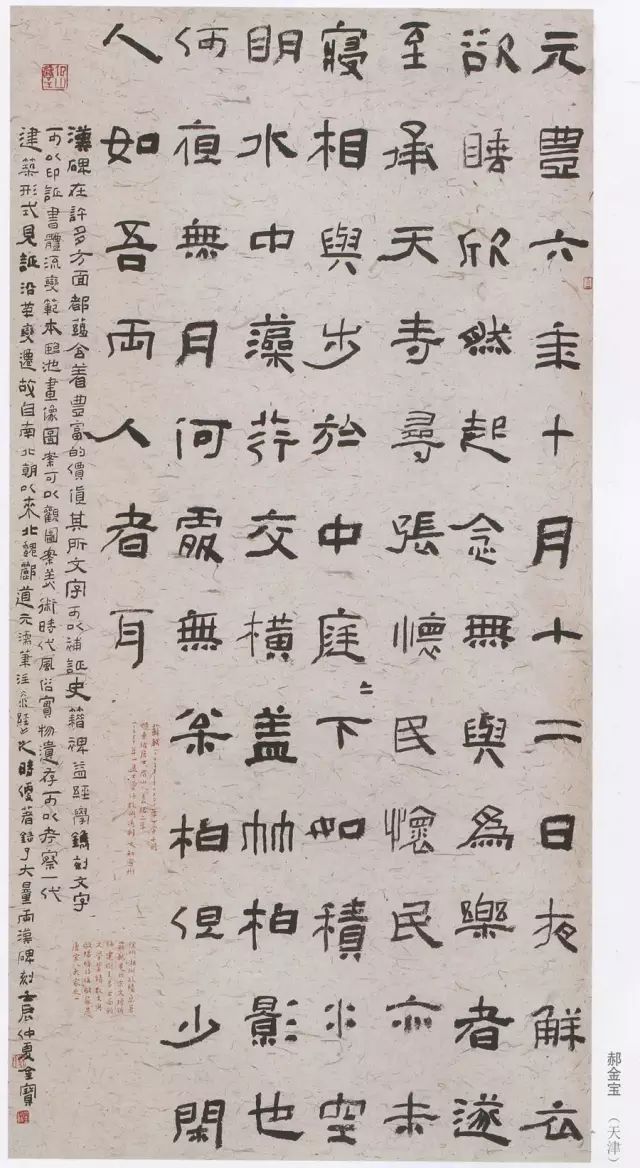 元豐六年十月十二日夜解衣
欲睡欣然起念無與為樂者遂
至承天寺尋張懷民懷民亦未
寢相與步於中庭下如積水空
明水中藻荇交橫蓋竹柏影也
何夜無月何處無枀柏但少閑
人如吾兩人者耳
漢碑在許多方面都蘊含着豐富的價值其所文字可以補証史籍碑益經學鐫刻文字
可以印証書體流變範本臨池畫像圖案可以觀圖案美術時代風俗實物遺存可以考察一代
建築形式見証沿革變遷故自南北朝以來北魏酈道元濡筆注水經之時便著錄了大量兩漢碑刻壬辰仲夏金寶
郝金宝（天津）